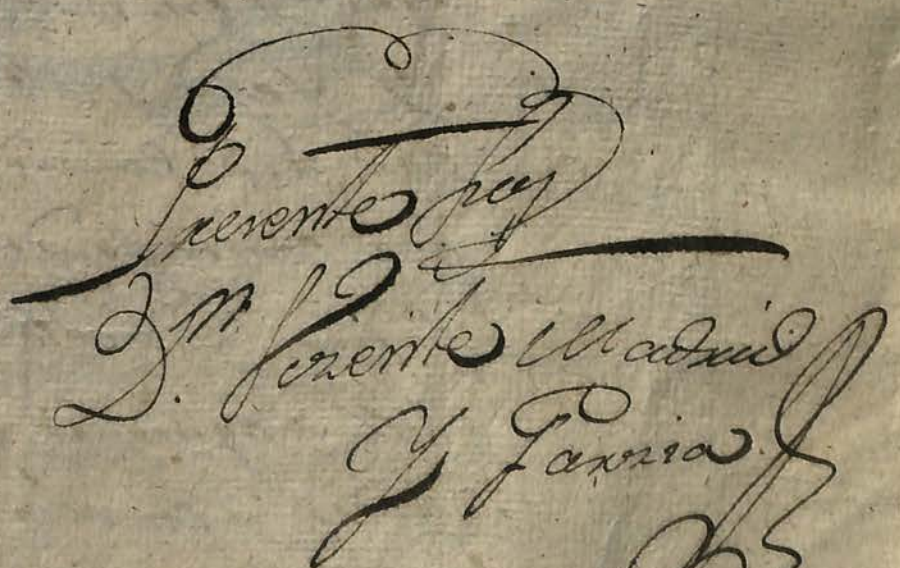 Presente fuy
Dn. Vizente Madrid
Y Garzia